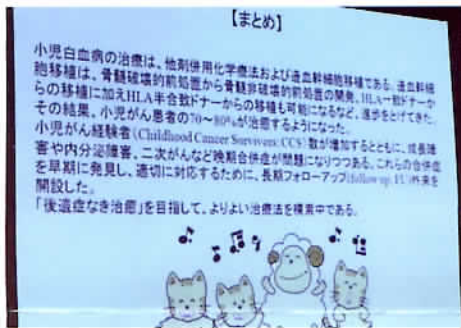 【まとめ】
小児白血病の治療は、他剤併用化学療法および造血幹細胞移植である。造血幹細
胞移植は、骨髄破壊的前処置から骨髄非破壊的前処置の開発、HLA一致ドナーか
らの移植に加えHLA半合致ドナーからの移植も可能になるなど、進歩をとげてきた。
その結果、小児がん患者の70～80%が治癒するようになった。
小児がん経験者(Childhood Cancer Survivors:CCS)数が増加するとともに、成長障
害や内分泌障害、二次がんなど晩期合併症が問題になりつつある。これらの合併症
を早期に発見し、適切に対応するために、長期フォローアップ(follow up: FU)外来を
開設した。
「後遺症なき治癒」を目指して、よりよい治療法を模索中である。